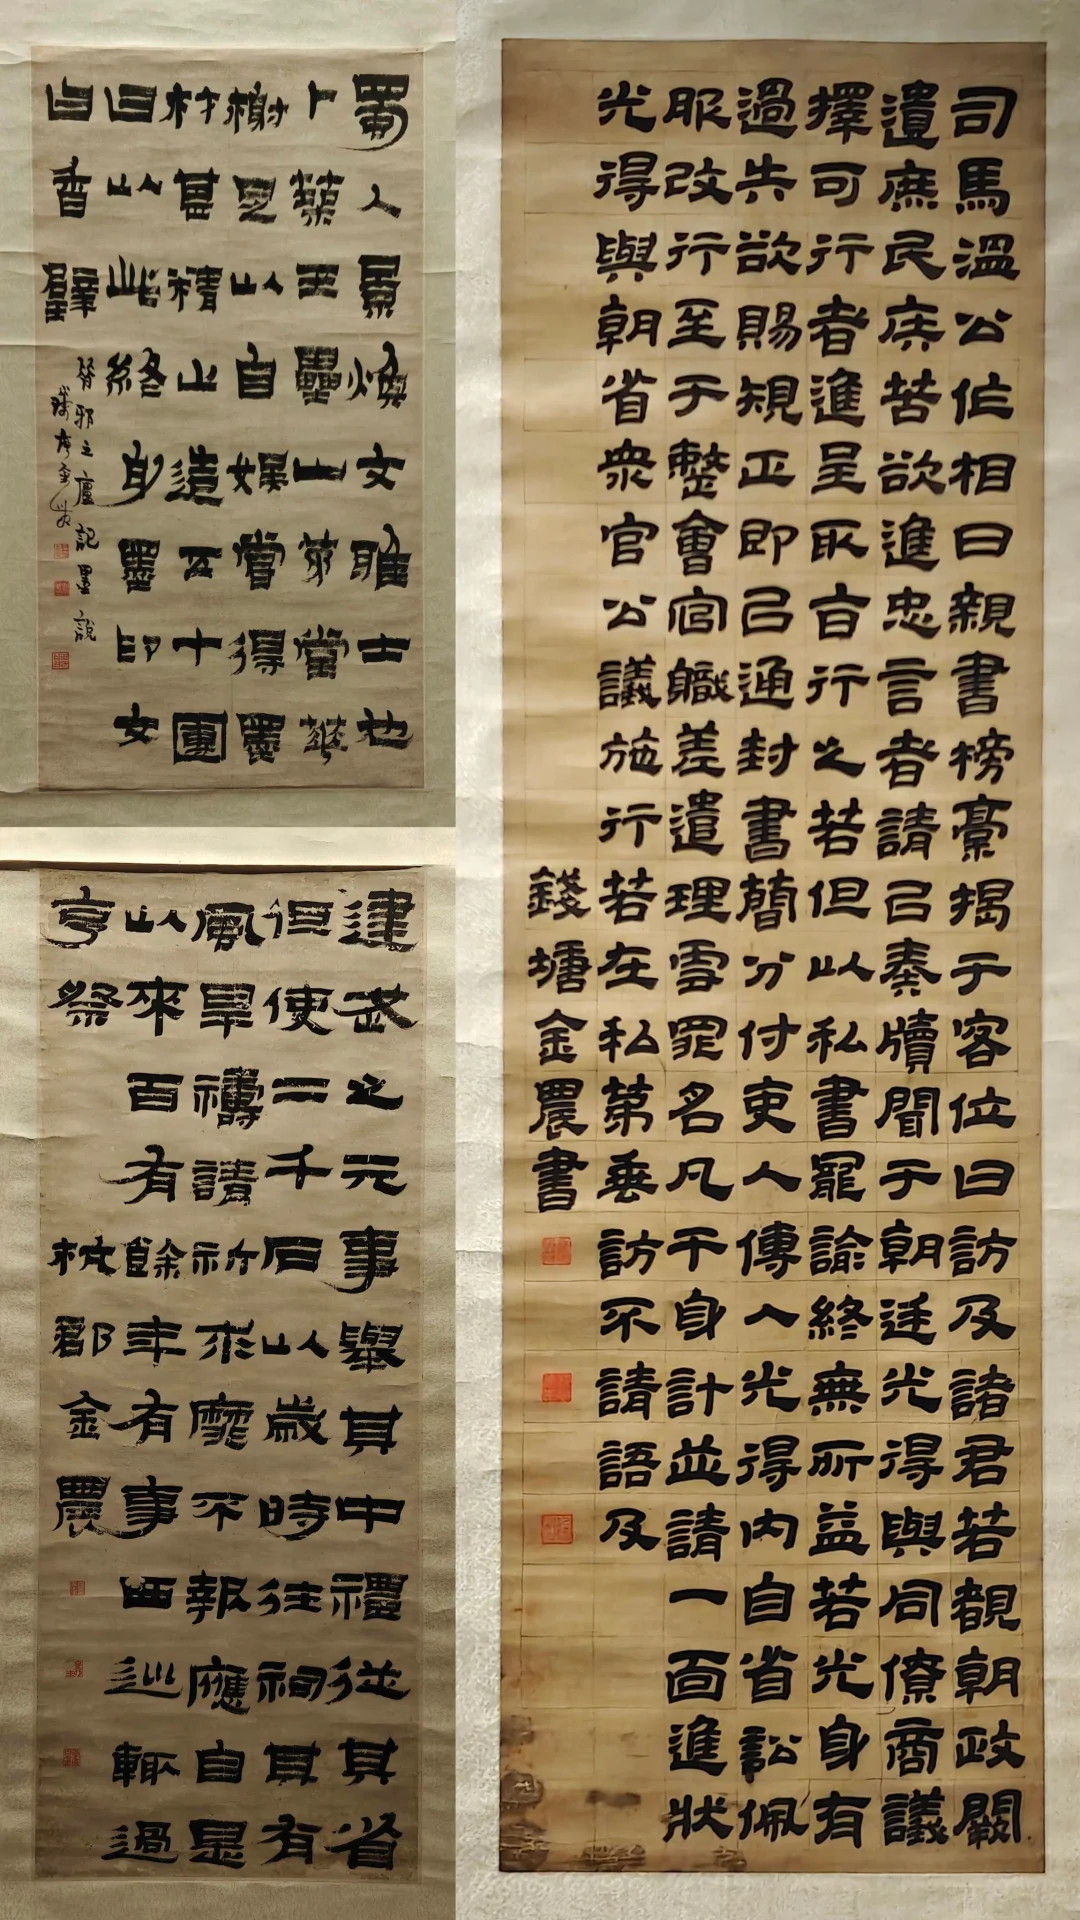 司馬溫公作相日親書榜藁揭于客位曰訪及諸君若覩朝政闕
遺庶民疾苦欲進忠言者請己奏牘聞于朝廷光得與同僚商議
擇可行者進呈取旨行之若但以私書寵諭終無所益若光身有
過失欲賜規正即己通封書簡分付吏人傳入光得內自省訟佩
服改行至于整會官職差遣理雪罪名凡干身計並請一面進狀
光得與朝省衆官公議施行若在私第垂訪不請語及
錢塘金農書
蜀人景煥文雅士也
卜築玉壘山茅堂華
榭足以自娛嘗得墨
材甚精止造五十團
曰以此終身墨印文
曰香璧
昔邪之廬記墨說
錢唐金農
建武之元事舉其中禮從其省
但使二千石以歲時往祠其有
風旱禱請祈求靡不報應自是
以來百有餘年有事西巡輒過
亨祭 杭郡金農